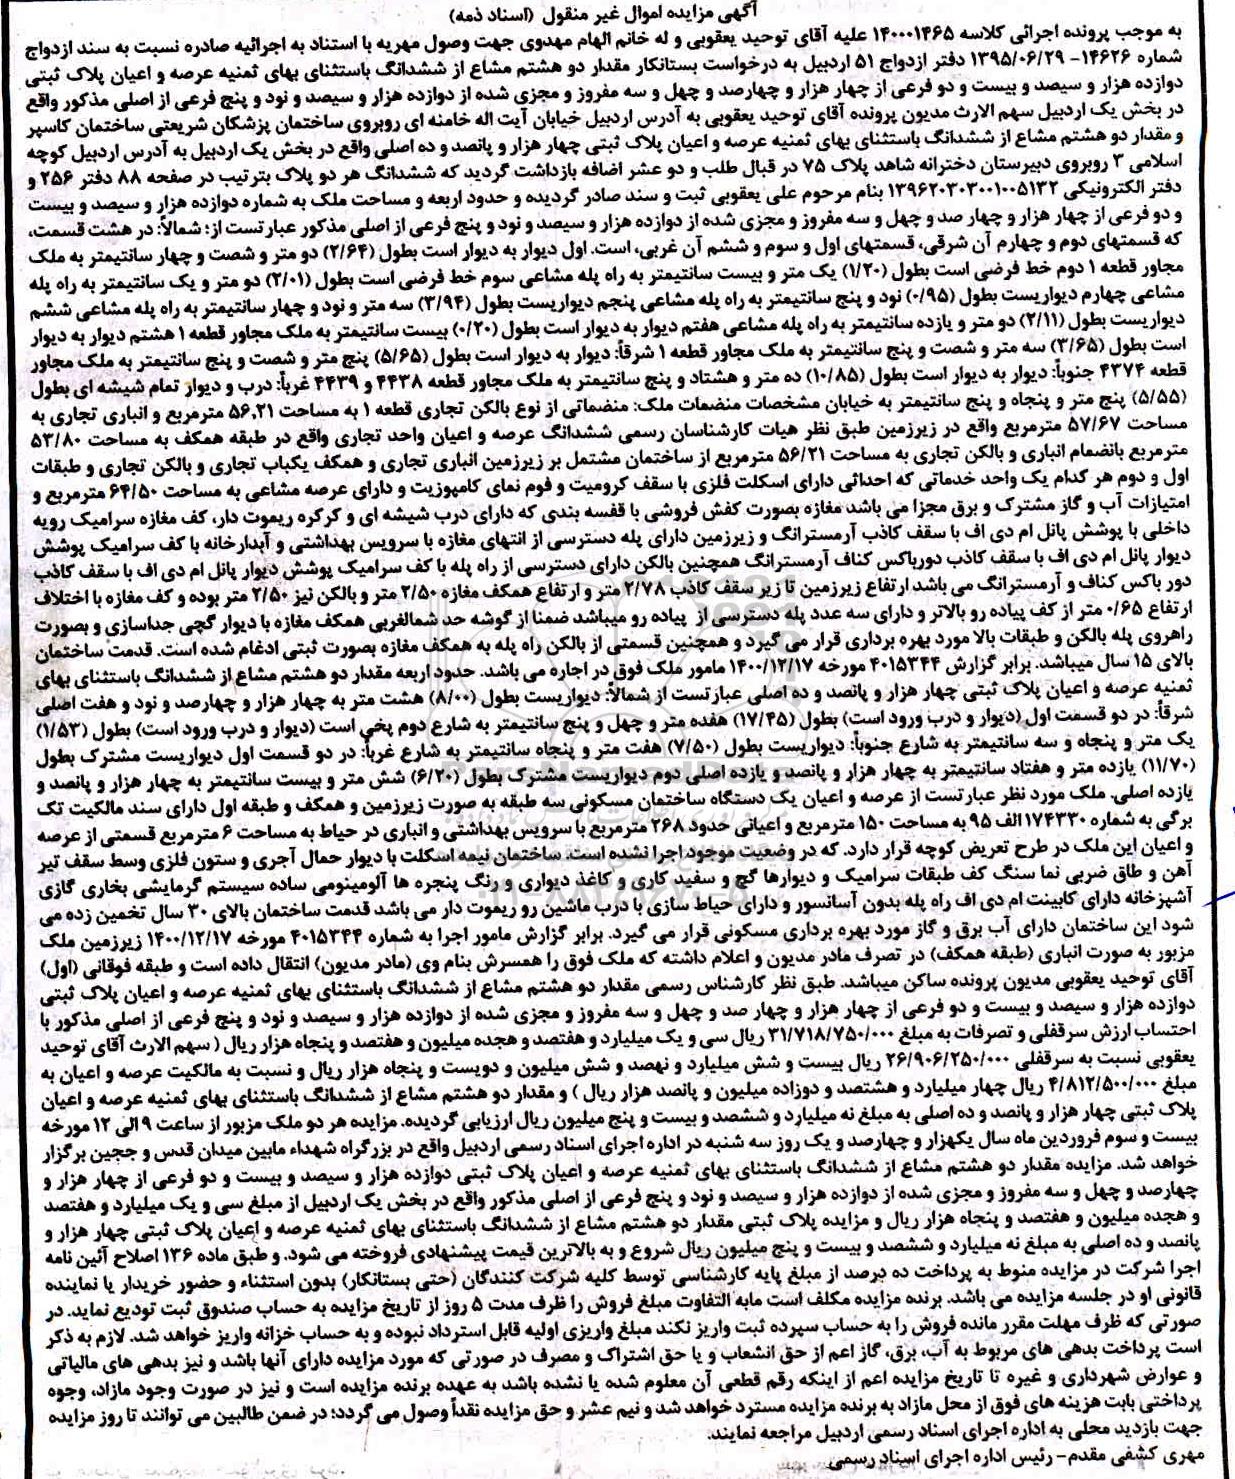 آگهی مزایده اموال غیر منقول (اسناد ذمه)
به موجب پرونده اجرائی کلاسه ۱۴۰۰۰۱۴۶۵ علیه آقای توحید یعقوبی و له خانم الهام مهدوی جهت وصول مهریه با استناد به اجرائیه صادره نسبت به سند ازدواج
شماره ۱۴۶۲۶- ۱۳۹۵/۰۶/۲۹ دفتر ازدواج ۵۱ اردبیل به درخواست بستانکار مقدار دو هشتم مشاع از ششدانگ باستثنای بهای ثمنیه عرصه و اعیان پلاک ثبتی
دوازده هزار و سیصد و بیست و دو فرعی از چهار هزار و چهارصد و چهل و سه مفروز و مجزی شده از دوازده هزار و سیصد و نود و پنج فرعی از اصلی مذکور واقع
در بخش یک اردبیل سهم الارث مدیون پرونده آقای توحید یعقوبی به آدرس اردبیل خیابان آیت اله خامنه ای روبروی ساختمان پزشکان شریعتی ساختمان کاسپر
و مقدار دو هشتم مشاع از ششدانگ باستثنای بهای ثمنیه عرصه و اعیان پلاک ثبتی چهار هزار و پانصد و ده اصلی واقع در بخش یک اردبیل به آدرس اردبیل کوچه
اسلامی ۳ روبروی دبیرستان دخترانه شاهد پلاک ۷۵ در قبال طلب و دو عشر اضافه بازداشت گردید که ششدانگ هر دو پلاک بترتیب در صفحه ۸۸ دفتر ۲۵۶ و
دفتر الکترونیکی ۱۳۹۶۲۰۳۰۳۰۰۱۰۰۵۱۳۲ بنام مرحوم علی یعقوبی ثبت و سند صادر گردیده و حدود اربعه و مساحت ملک به شماره دوازده هزار و سیصد و بیست
و دو فرعی از چهار هزار و چهار صد و چهل و سه مفروز و مجزی شده از دوازده هزار و سیصد و نود و پنج فرعی از اصلی مذکور عبارتست از: شمالاً: در هشت قسمت،
که قسمتهای دوم و چهارم آن شرقی، قسمتهای اول و سوم و ششم آن غربی، است. اول دیوار به دیوار است بطول (۲/۶۴) دو متر و شصت و چهار سانتیمتر به ملک
مجاور قطعه ۱ دوم خط فرضی است بطول (۱/۲۰) یک متر و بیست سانتیمتر به راه پله مشاعی سوم خط فرضی است بطول (۲/۰۱) دو متر و یک سانتیمتر به راه پله
مشاعی چهارم دیواریست بطول (۰/۹۵) نود و پنج سانتیمتر به راه پله مشاعی پنجم دیواریست بطول (۳/۹۴) سه متر و نود و چهار سانتیمتر به راه پله مشاعی ششم
دیواریست بطول (۲/۱۱) دو متر و یازده سانتیمتر به راه پله مشاعی هفتم دیوار به دیوار است بطول (۰/۲۰) بیست سانتیمتر به ملک مجاور قطعه ۱ هشتم دیوار به دیوار
است بطول (۳/۶۵) سه متر و شصت و پنج سانتیمتر به ملک مجاور قطعه ۱ شرقاً: دیوار به دیوار است بطول (۵/۶۵) پنج متر و شصت و پنج سانتیمتر به ملک مجاور
قطعه ۴۳۷۴ جنوباً: دیوار به دیوار است بطول (۱۰/۸۵) ده متر و هشتاد و پنج سانتیمتر به ملک مجاور قطعه ۴۴۳۸ و ۴۴۳۹ غرباً: درب و دیوار تمام شیشه ای بطول
(۵/۵۵) پنج متر و پنجاه و پنج سانتیمتر به خیابان مشخصات منضمات ملک: منضماتی از نوع بالکن تجاری قطعه ۱ به مساحت ۵۶,۲۱ مترمربع و انباری تجاری به
مساحت ۵۷/۶۷ مترمربع واقع در زیرزمین طبق نظر هیات کارشناسان رسمی ششدانگ عرصه و اعیان واحد تجاری واقع در طبقه همکف به مساحت ۵۳/۸۰
مترمربع بانضمام انباری و بالکن تجاری به مساحت ۵۶/۲۱ مترمربع از ساختمان مشتمل بر زیرزمین انباری تجاری و همکف یکباب تجاری و بالکن تجاری و طبقات
اول و دوم هر کدام یک واحد خدماتی که احداثی دارای اسکلت فلزی با سقف کرومیت و فوم نمای کامپوزیت و دارای عرصه مشاعی به مساحت ۶۴/۵۰ مترمربع و
امتیازات آب و گاز مشترک و برق مجزا می باشد مغازه بصورت کفش فروشی با قفسه بندی که دارای درب شیشه ای و کرکره ریموت دار، کف مغازه سرامیک رویه
داخلی با پوشش پانل ام دی اف با سقف کاذب آرمسترانگ و زیرزمین دارای پله دسترسی از انتهای مغازه با سرویس بهداشتی و آبدارخانه با کف سرامیک پوشش
دیوار پانل ام دی اف با سقف کاذب دورباکس کناف آرمسترانگ همچنین بالکن دارای دسترسی از راه پله با کف سرامیک پوشش دیوار پانل ام دی اف با سقف کاذب
دور باکس کناف و آرمسترانگ می باشد ارتفاع زیرزمین تا زیر سقف کاذب ۲/۷۸ متر و ارتفاع همکف مغازه ۲/۵۰ متر و بالکن نیز ۲/۵۰ متر بوده و کف مغازه با اختلاف
ارتفاع ۰/۶۵ متر از کف پیاده رو بالاتر و دارای سه عدد پله دسترسی از پیاده رو میباشد ضمنا از گوشه حد شمالغربی همکف مغازه با دیوار گچی جداسازی و بصورت
راهروی پله بالکن و طبقات بالا مورد بهره برداری قرار می گیرد و همچنین قسمتی از بالکن راه پله به همکف مغازه بصورت ثبتی ادغام شده است. قدمت ساختمان
بالای ۱۵ سال میباشد. برابر گزارش ۴۰۱۵۳۴۴ مورخه ۱۴۰۰/۱۲/۱۷ مامور ملک فوق در اجاره می باشد. حدود اربعه مقدار دو هشتم مشاع از ششدانگ باستثنای بهای
ثمنیه عرصه و اعیان پلاک ثبتی چهار هزار و پانصد و ده اصلی عبارتست از شمالاً: دیواریست بطول (۸/۰۰) هشت متر به چهار هزار و چهارصد و نود و هفت اصلی
شرقاً: در دو قسمت اول (دیوار و درب ورود است) بطول (۱۷/۴۵) هفده متر و چهل و پنج سانتیمتر به شارع دوم پخی است (دیوار و درب ورود است) بطول (۱/۵۳)
یک متر و پنجاه و سه سانتیمتر به شارع جنوباً: دیواریست بطول (۷/۵۰) هفت متر و پنجاه سانتیمتر به شارع غرباً: در دو قسمت اول دیواریست مشترک بطول
(۱۱/۷۰) یازده متر و هفتاد سانتیمتر به چهار هزار و پانصد و یازده اصلی دوم دیواریست مشترک بطول (۶/۲۰) شش متر و بیست سانتیمتر به چهار هزار و پانصد و
یازده اصلی. ملک مورد نظر عبارتست از عرصه و اعیان یک دستگاه ساختمان مسکونی سه طبقه به صورت زیرزمین و همکف و طبقه اول دارای سند مالکیت تک
برگی به شماره ۱۷۴۳۳۰ الف ۹۵ به مساحت ۱۵۰ مترمربع و اعیانی حدود ۲۶۸ مترمربع با سرویس بهداشتی و انباری در حیاط به مساحت ۶ مترمربع قسمتی از عرصه
و اعیان این ملک در طرح تعریض کوچه قرار دارد. که در وضعیت موجود اجرا نشده است. ساختمان نیمه اسکلت با دیوار حمال آجری و ستون فلزی وسط سقف تیر
آهن و طاق ضربی نما سنگ کف طبقات سرامیک و دیوارها گچ و سفید کاری و کاغذ دیواری و رنگ پنجره ها آلومینومی ساده سیستم گرمایشی بخاری گازی
آشپزخانه دارای کابینت ام دی اف راه پله بدون آسانسور و دارای حیاط سازی با درب ماشین رو ریموت دار می باشد قدمت ساختمان بالای ۳۰ سال تخمین زده می
شود این ساختمان دارای آب برق و گاز مورد بهره برداری مسکونی قرار می گیرد. برابر گزارش مامور اجرا به شماره ۴۰۱۵۳۴۴ مورخه ۱۴۰۰/۱۲/۱۷ زیرزمین ملک
مزبور به صورت انباری (طبقه همکف) در تصرف مادر مدیون و اعلام داشته که ملک فوق را همسرش بنام وی (مادر مدیون) انتقال داده است و طبقه فوقانی (اول)
آقای توحید یعقوبی مدیون پرونده ساکن میباشد. طبق نظر کارشناس رسمی مقدار دو هشتم مشاع از ششدانگ باستثنای بهای ثمنیه عرصه و اعیان پلاک ثبتی
دوازده هزار و سیصد و بیست و دو فرعی از چهار هزار و چهار صد و چهل و سه مفروز و مجزی شده از دوازده هزار و سیصد و نود و پنج فرعی از اصلی مذکور با
احتساب ارزش سرقفلی و تصرفات به مبلغ ۳۱/۷۱۸/۷۵۰/۰۰۰ ریال سی و یک میلیارد و هفتصد و هجده میلیون و هفتصد و پنجاه هزار ریال ( سهم الارث آقای توحید
یعقوبی نسبت به سرقفلی ۲۶/۹۰۶/۲۵۰/۰۰۰ ریال بیست و شش میلیارد و نهصد و شش میلیون و دویست و پنجاه هزار ریال و نسبت به مالکیت عرصه و اعیان به
مبلغ ۴/۸۱۲/۵۰۰/۰۰۰ ریال چهار میلیارد و هشتصد و دوزاده میلیون و پانصد هزار ریال ) و مقدار دو هشتم مشاع از ششدانگ باستثنای بهای ثمنیه عرصه و اعیان
پلاک ثبتی چهار هزار و پانصد و ده اصلی به مبلغ نه میلیارد و ششصد و بیست و پنج میلیون ریال ارزیابی گردیده. مزایده هر دو ملک مزبور از ساعت ۹ الی ۱۲ مورخه
بیست و سوم فروردین ماه سال یکهزار و چهارصد و یک روز سه شنبه در اداره اجرای اسناد رسمی اردبیل واقع در بزرگراه شهداء مابین میدان قدس و ججین برگزار
خواهد شد. مزایده مقدار دو هشتم مشاع از ششدانگ باستثنای بهای ثمنیه عرصه و اعیان پلاک ثبتی دوازده هزار و سیصد و بیست و دو فرعی از چهار هزار و
چهارصد و چهل و سه مفروز و مجزی شده از دوازده هزار و سیصد و نود و پنج فرعی از اصلی مذکور واقع در بخش یک اردبیل از مبلغ سی و یک میلیارد و هفتصد
و هجده میلیون و هفتصد و پنجاه هزار ریال و مزایده پلاک ثبتی مقدار دو هشتم مشاع از ششدانگ باستثنای بهای ثمنیه عرصه و اعیان پلاک ثبتی چهار هزار و
پانصد و ده اصلی به مبلغ نه میلیارد و ششصد و بیست و پنج میلیون ریال شروع و به بالاترین قیمت پیشنهادی فروخته می شود. و طبق ماده ۱۳۶ اصلاح آئین نامه
اجرا شرکت در مزایده منوط به پرداخت ده درصد از مبلغ پایه کارشناسی توسط کلیه شرکت کنندگان (حتی بستانکار) بدون استثناء و حضور خریدار یا نماینده
قانونی او در جلسه مزایده می باشد. برنده مزایده مکلف است مابه التفاوت مبلغ فروش را ظرف مدت ۵ روز از تاریخ مزایده به حساب صندوق ثبت تودیع نماید. در
صورتی که ظرف مهلت مقرر مانده فروش را به حساب سپرده ثبت واریز نکند مبلغ واریزی اولیه قابل استرداد نبوده و به حساب خزانه واریز خواهد شد. لازم به ذکر
است پرداخت بدهی های مربوط به آب، برق، گاز اعم از حق انشعاب و یا حق اشتراک و مصرف در صورتی که مورد مزایده دارای آنها باشد و نیز بدهی های مالیاتی
و عوارض شهرداری و غیره تا تاریخ مزایده اعم از اینکه رقم قطعی آن معلوم شده یا نشده باشد به عهده برنده مزایده است و نیز در صورت وجود مازاد، وجوه
پرداختی بابت هزینه های فوق از محل مازاد به برنده مزایده مسترد خواهد شد و نیم عشر و حق مزایده نقداً وصول می گردد؛ در ضمن طالبین می توانند تا روز مزایده
جهت بازدید محلی به اداره اجرای اسناد رسمی اردبیل مراجعه نمایند.
مهری کشفی مقدم- رئیس اداره اجرای اسناد رسمی